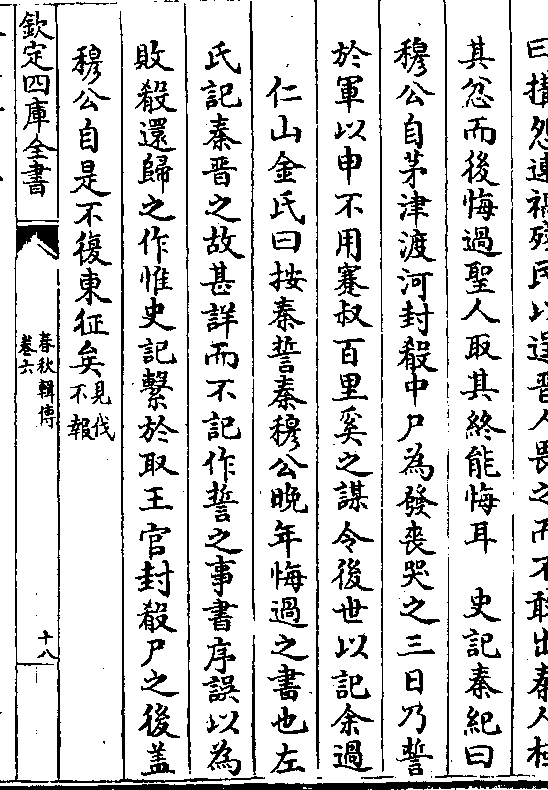 曰搆怨連禍殘民以逞晋人畏之而不敢出春人
其忿而後悔過聖人取其終能悔耳　史記秦紀曰
穆公自茅津渡河封殽中尸為發喪哭之三日乃誓
於軍以申不用蹇叔百里奚之謀令後世以記余過
仁山金氏曰按秦誓秦穆公晚年悔過之書也左
氏記秦晋之故甚詳而不記作誓之事書序誤以為
敗殽還歸之作惟史記繫於取王官封殽尸之後盖
穆公自是不復東征矣見伐不報
欽定四庫全書
春秋輯傳
卷六
十八